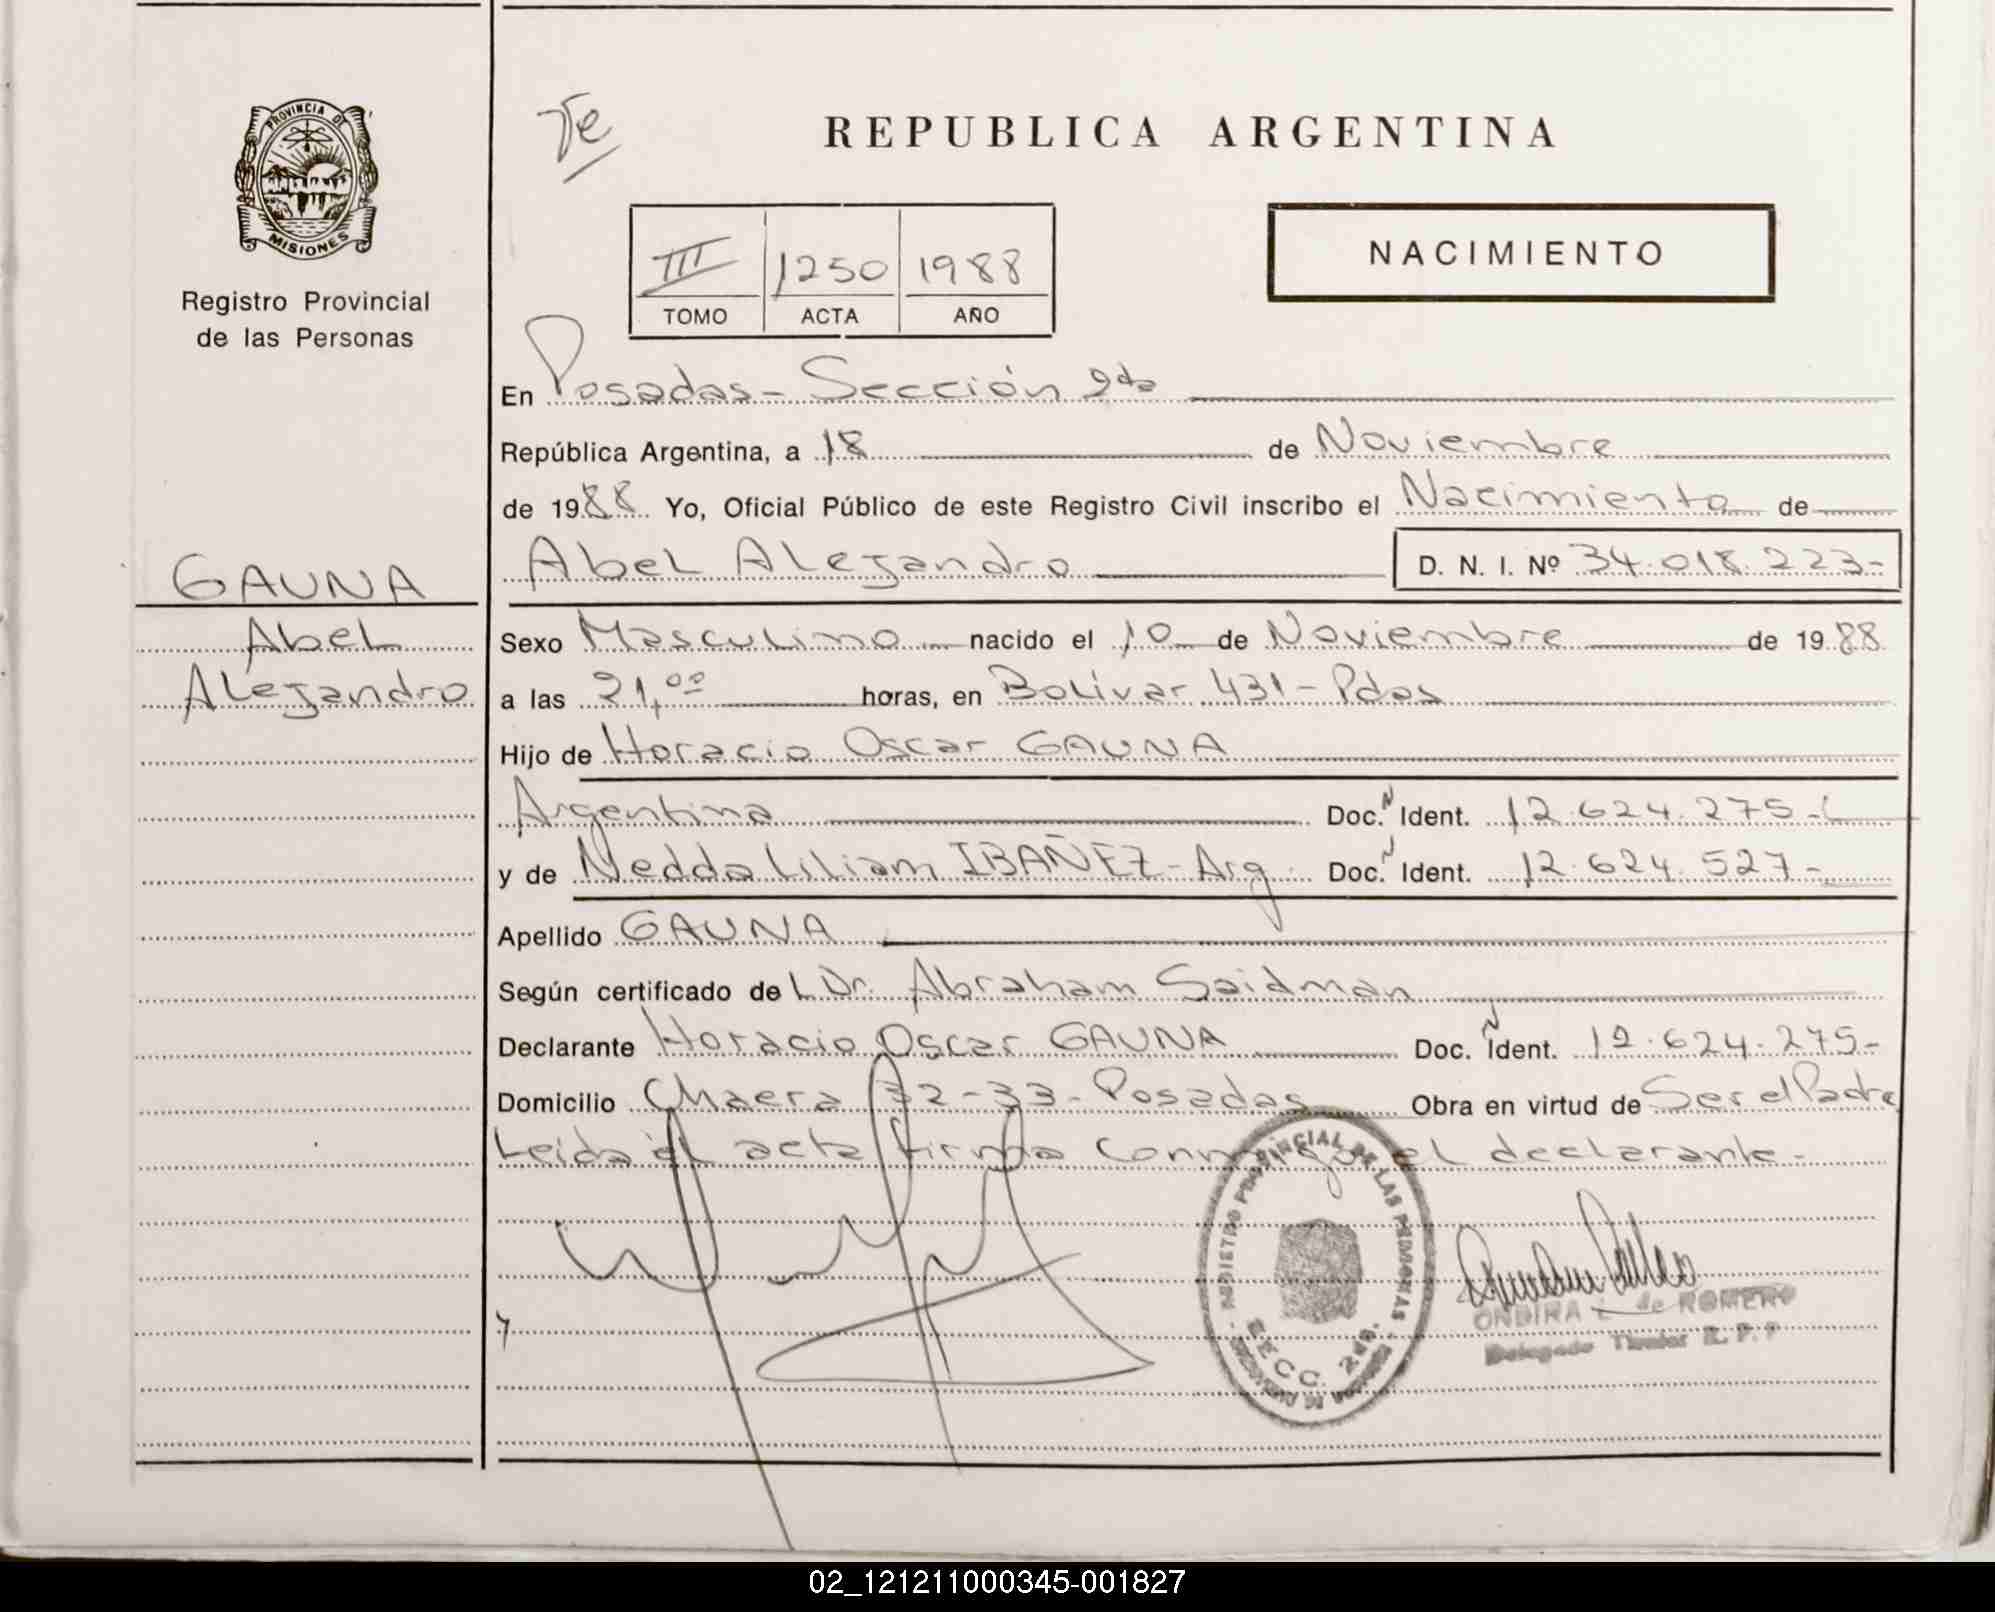 PROVINCIA DE
MISIONES
Registro Provincial
de las Personas
GAUNA
Abel
Alejandro
Te
REPUBLICA ARGENTINA
NACIMIENTO
III 1250 1988
TOMO ACTA AÑO
En Posadas - Sección 2da
República Argentina, a 18 de Noviembre
de 1988 Yo, Oficial Público de este Registro Civil inscribo el Nacimiento de
Abel Alejandro D. N. I. Nº 34.018.223-
Sexo Masculino nacido el 10 de Noviembre de 1988
a las 21,00 horas, en Bolívar 431 - Pdas
Hijo de Horacio Oscar GAUNA
Argentina Doc. N Ident. 12.624.275-
y de Nedda Liliam IBAÑEZ - Arg. Doc. Ident. 12.624.527-
Apellido GAUNA
Según certificado de L Dr. Abraham Saidman
Declarante Horacio Oscar GAUNA Doc. N Ident. 12.624.275-
Domicilio Chacra 32-33- Posadas Obra en virtud de Ser el Padre
Leída el acta firma conmigo el declarante.-
REGISTRO PROVINCIAL DE LAS PERSONAS
SECC. 2da.
ONDINA L. de ROMERO
Delegado Titular R. P. P
02_121211000345-001827